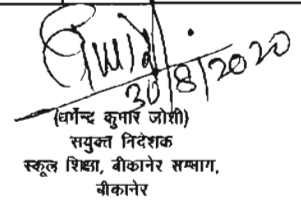 30/8/2020
(धर्मेन्द्र कुमार जोशी)
सयुक्त निदेशक
स्कूल शिक्षा, बीकानेर सम्भाग,
बीकानेर